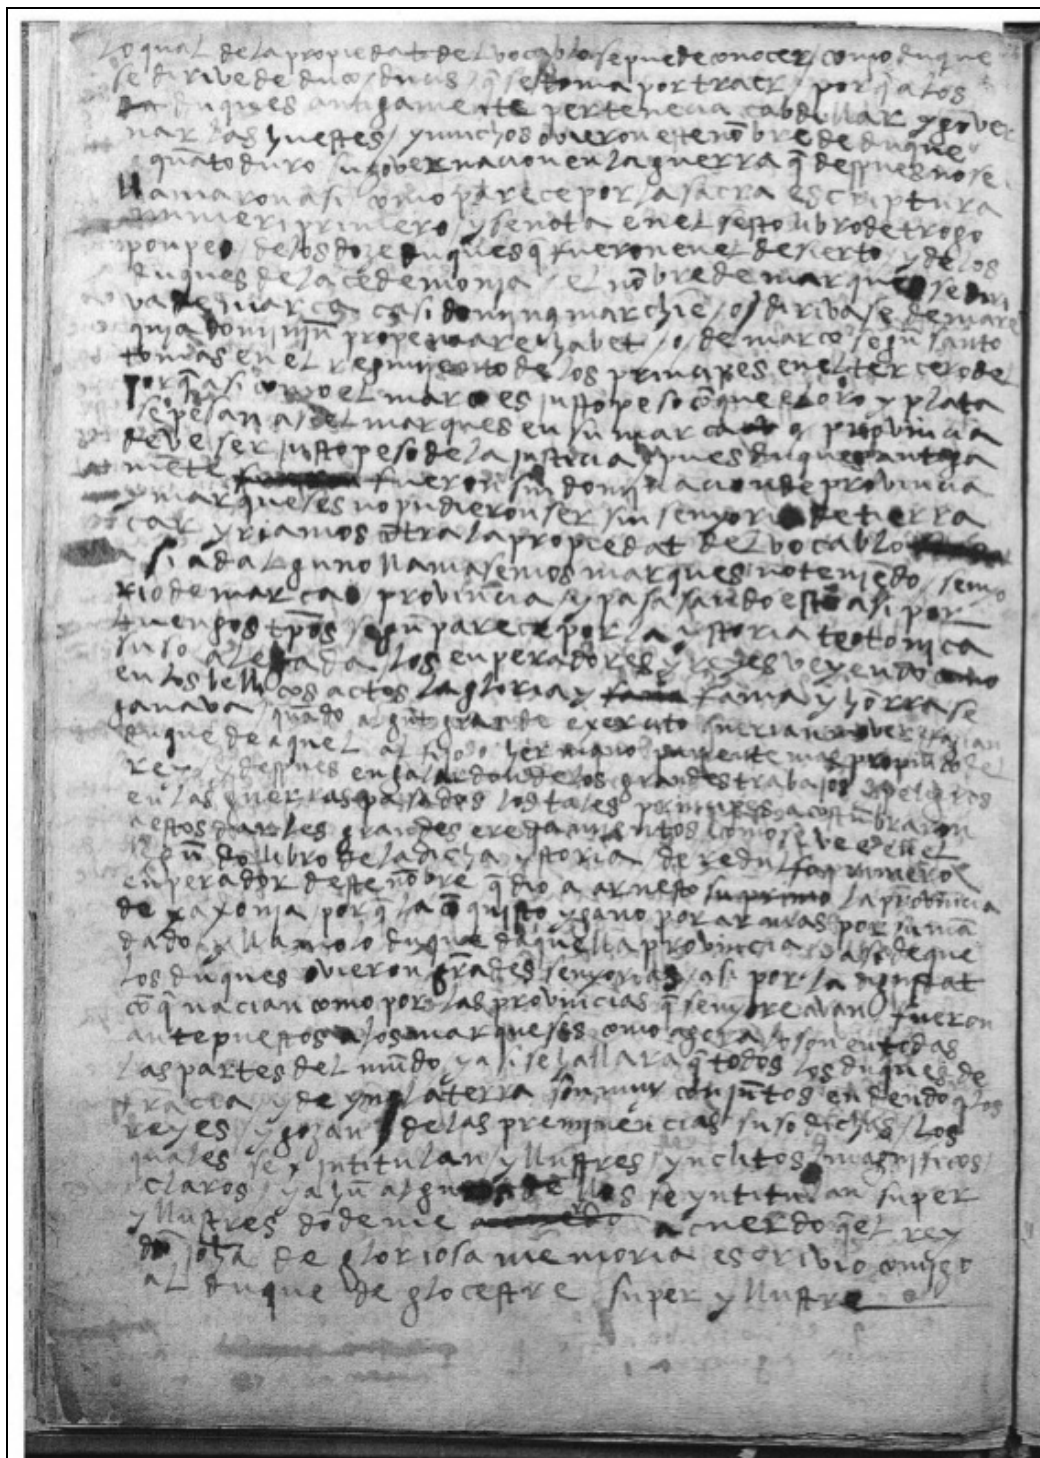 lo qual de la propiedat del vocablo se puede conocer / como duque
se dirive de duco / ducis / q̄ se toma por traer / porq̄ a los
duques antigamente pertenecia cabdillar y gover
nar las huestes / y muchos ovieron este nōbre de duque
quāto duro su governacion en la guerra q̄ despues no se
llamaron asi como parece por la sacra escriptura
numeri primero / y se nota en el sesto libro de trogo
ponpeo / de los doze duques q̄ fueron en el desierto / y de los
duques de lacedemonia / el nōbre de marques se diri
va de marca casi dominus marchie / o / diriva se de mare
quia dominiū prope mare habet / o / de marco segū santo
tomas en el regimiento de los principes en el tercero del
porq̄ asi como el marco es justo peso cō que el oro y plata
se pesan asi el marques en su marca o provincia
deve ser justo peso de la justicia / pues duques antiga
mēte fueron sin dominacion de provincia
y marqueses no pudieron ser sin senyoria de tierra
car yriamos cōtra la propiedat del vocablo
si ad alguno llamasemos marques no teniēdo senyo
rio de marca o provīncia / y pasasando esto asi por
luengos tp̄os / segū parece por la ystoria teotonica
suso alegada / los enperadores y reyes veyendo
en los bellicos actos la gloria y fama y hōrra se
ganava / quādo algū grande exercito querian mover fazian
duque de aquel al fijo o hermano o pariente mas propinco del
rey / y despues en galardon de los grandes trabajos y peligros
en las guerras pasados los tales principes acostūbraron
a estos dar les grandes eredamientos como se vee en el
segūdo libro de la dicha ystoria de redulfo primero
enperador deste nōbre q̄ dio a arnesto la provīncia
de xaxonia / porq̄ la cōquisto y gano por armas por su mā
dado / y llamolo duque daquella provīncia / asi de que
los duques ovieron grādes senyorias / asi por la dignitat
cō q̄ nacian como por las provincias q̄ senyoreavan fueron
antepuestos a los marqueses como agora lo son en todas
las partes del mūdo / y asi se hallara q̄ todos los duques de
francia / y de ynglaterra son muy conjūtos en deudo a los
reyes / y gozan de las preminēncias suso dichas / los
quales se yntitulan / yllustres / ynclitos / magnificos /
claros / y ahū algunos dellos se yntitulan super
yllustres dōde me acuerdo q̄ el rey
dō johā de gloriosa memoria escrivio comigo
al duque de glocestre super yllustre